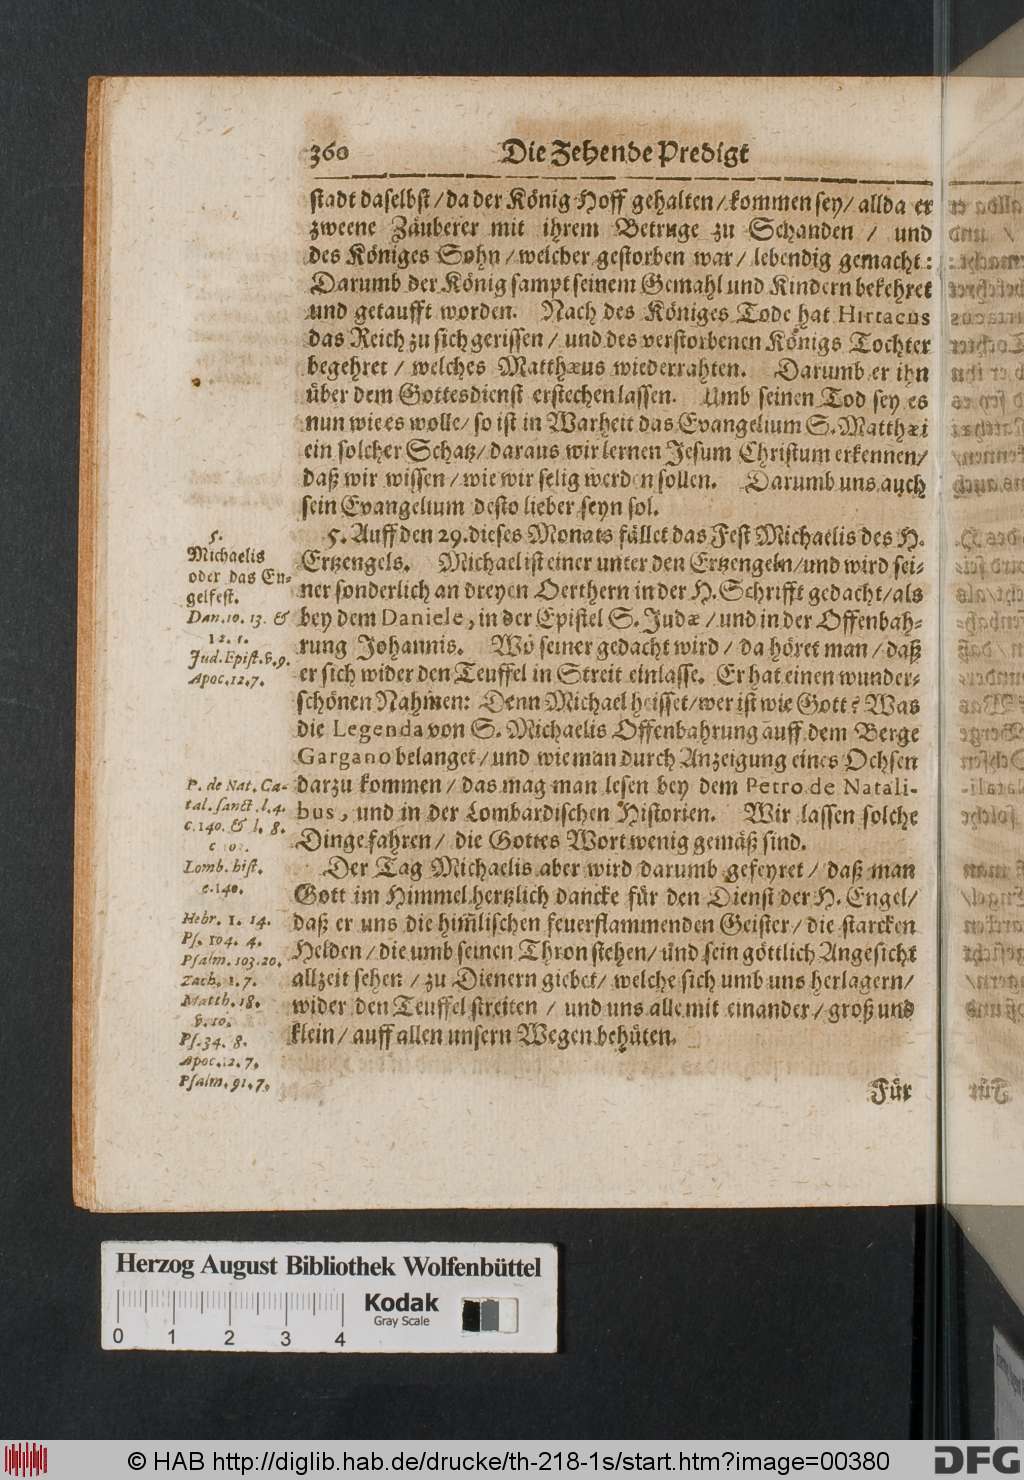 360 Die Zehende Predigt
stadt daselbst / da der König Hoff gehalten / kommen sey / allda er
zweene Zäuberer mit ihrem Betruge zu Schanden / und
des Königes Sohn / welcher gestorben war / lebendig gemacht:
Darumb der König sampt seinem Gemahl und Kindern bekehret
und getaufft worden. Nach des Königes Tode hat Hirtacus
das Reich zu sich gerissen / und des verstorbenen Königs Tochter
begehret / welches Matthæus wiederrahten. Darumb er ihn
über dem Gottesdienst erstechen lassen. Umb seinen Tod sey es
nun wie es wolle / so ist in Warheit das Evangelium S. Matthæi
ein solcher Schatz / daraus wir lernen Jesum Christum erkennen /
daß wir wissen / wie wir selig werden sollen. Darumb uns auch
sein Evangelium desto lieber seyn sol.
5. Auff den 29. dieses Monats fället das Fest Michaelis des H.
Ertzengels. Michael ist einer unter den Ertzengeln / und wird sei-
ner sonderlich an dreyen Oerthern in der H. Schrifft gedacht / als
bey dem Daniele, in der Epistel S. Judæ / und in der Offenbah-
rung Johannis. Wo seiner gedacht wird / da höret man / daß
er sich wider den Teuffel in Streit einlasse. Er hat einen wunder-
schönen Nahmen: Denn Michael heisset / wer ist wie Gott? Was
die Legenda von S. Michaelis Offenbahrung auff dem Berge
Gargano belanget / und wie man durch Anzeigung eines Ochsen
darzu kommen / das mag man lesen bey dem Petro de Natali-
bus, und in der Lombardischen Historien. Wir lassen solche
Dinge fahren / die Gottes Wort wenig gemäß sind.
Der Tag Michaelis aber wird darumb gefeyret / daß man
Gott im Himmel hertzlich dancke für den Dienst der H. Engel /
daß er uns die him̄lischen feuerflammenden Geister / die starcken
Helden / die umb seinen Thron stehen / und sein göttlich Angesicht
allzeit sehen / zu Dienern giebet / welche sich umb uns herlagern /
wider den Teuffel streiten / und uns alle mit einander / groß und
klein / auff allen unsern Wegen behüten.
Für
5.
Michaelis
oder das En-
gelfest.
Dan. 10. 13. &
12. 1.
Jud. Epist. v. 9.
Apoc. 12. 7.
P. de Nat. Ca-
tal. sanct. l. 4.
c. 140. & l. 8.
Lomb. hist.
c. 140.
Hebr. 1. 14.
Ps. 104. 4.
Psalm. 103. 20.
Zach. 1. 7.
Matth. 18.
v. 10.
Ps. 34. 8.
Apoc. 12. 7.
Psalm. 91. 7.
Herzog August Bibliothek Wolfenbüttel
Kodak
Gray Scale
0 1 2 3 4
© HAB http://diglib.hab.de/drucke/th-218-1s/start.htm?image=00380
DFG